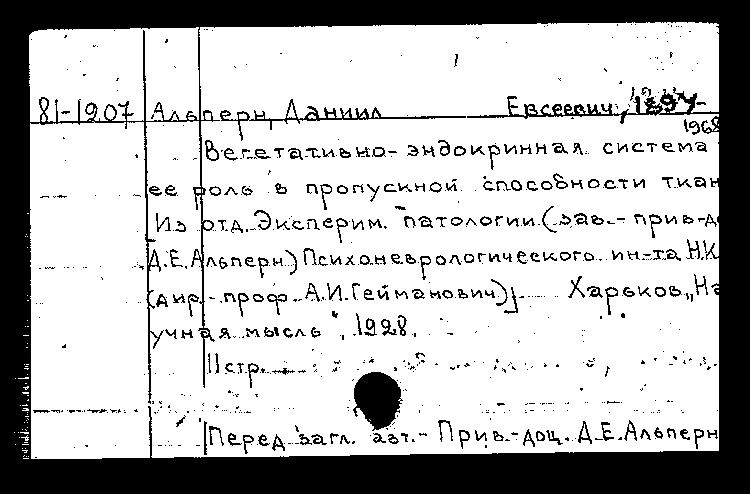 81-1907 Альперн, Даниил Евсеевич, 1894-
1968
Вегетативно-эндокринная система
ее роль в пропускной способности ткан
[Из отд. Эксперим. патологии (зав.-прив-до
Д.Е.Альперн) Психоневрологического ин-та НК
(дир.-проф. А.И.Гейманович)]. Харьков, „На
учная мысль", 1928.
11 стр.
Перед загл. авт.- Прив.-доц. Д.Е.Альперн